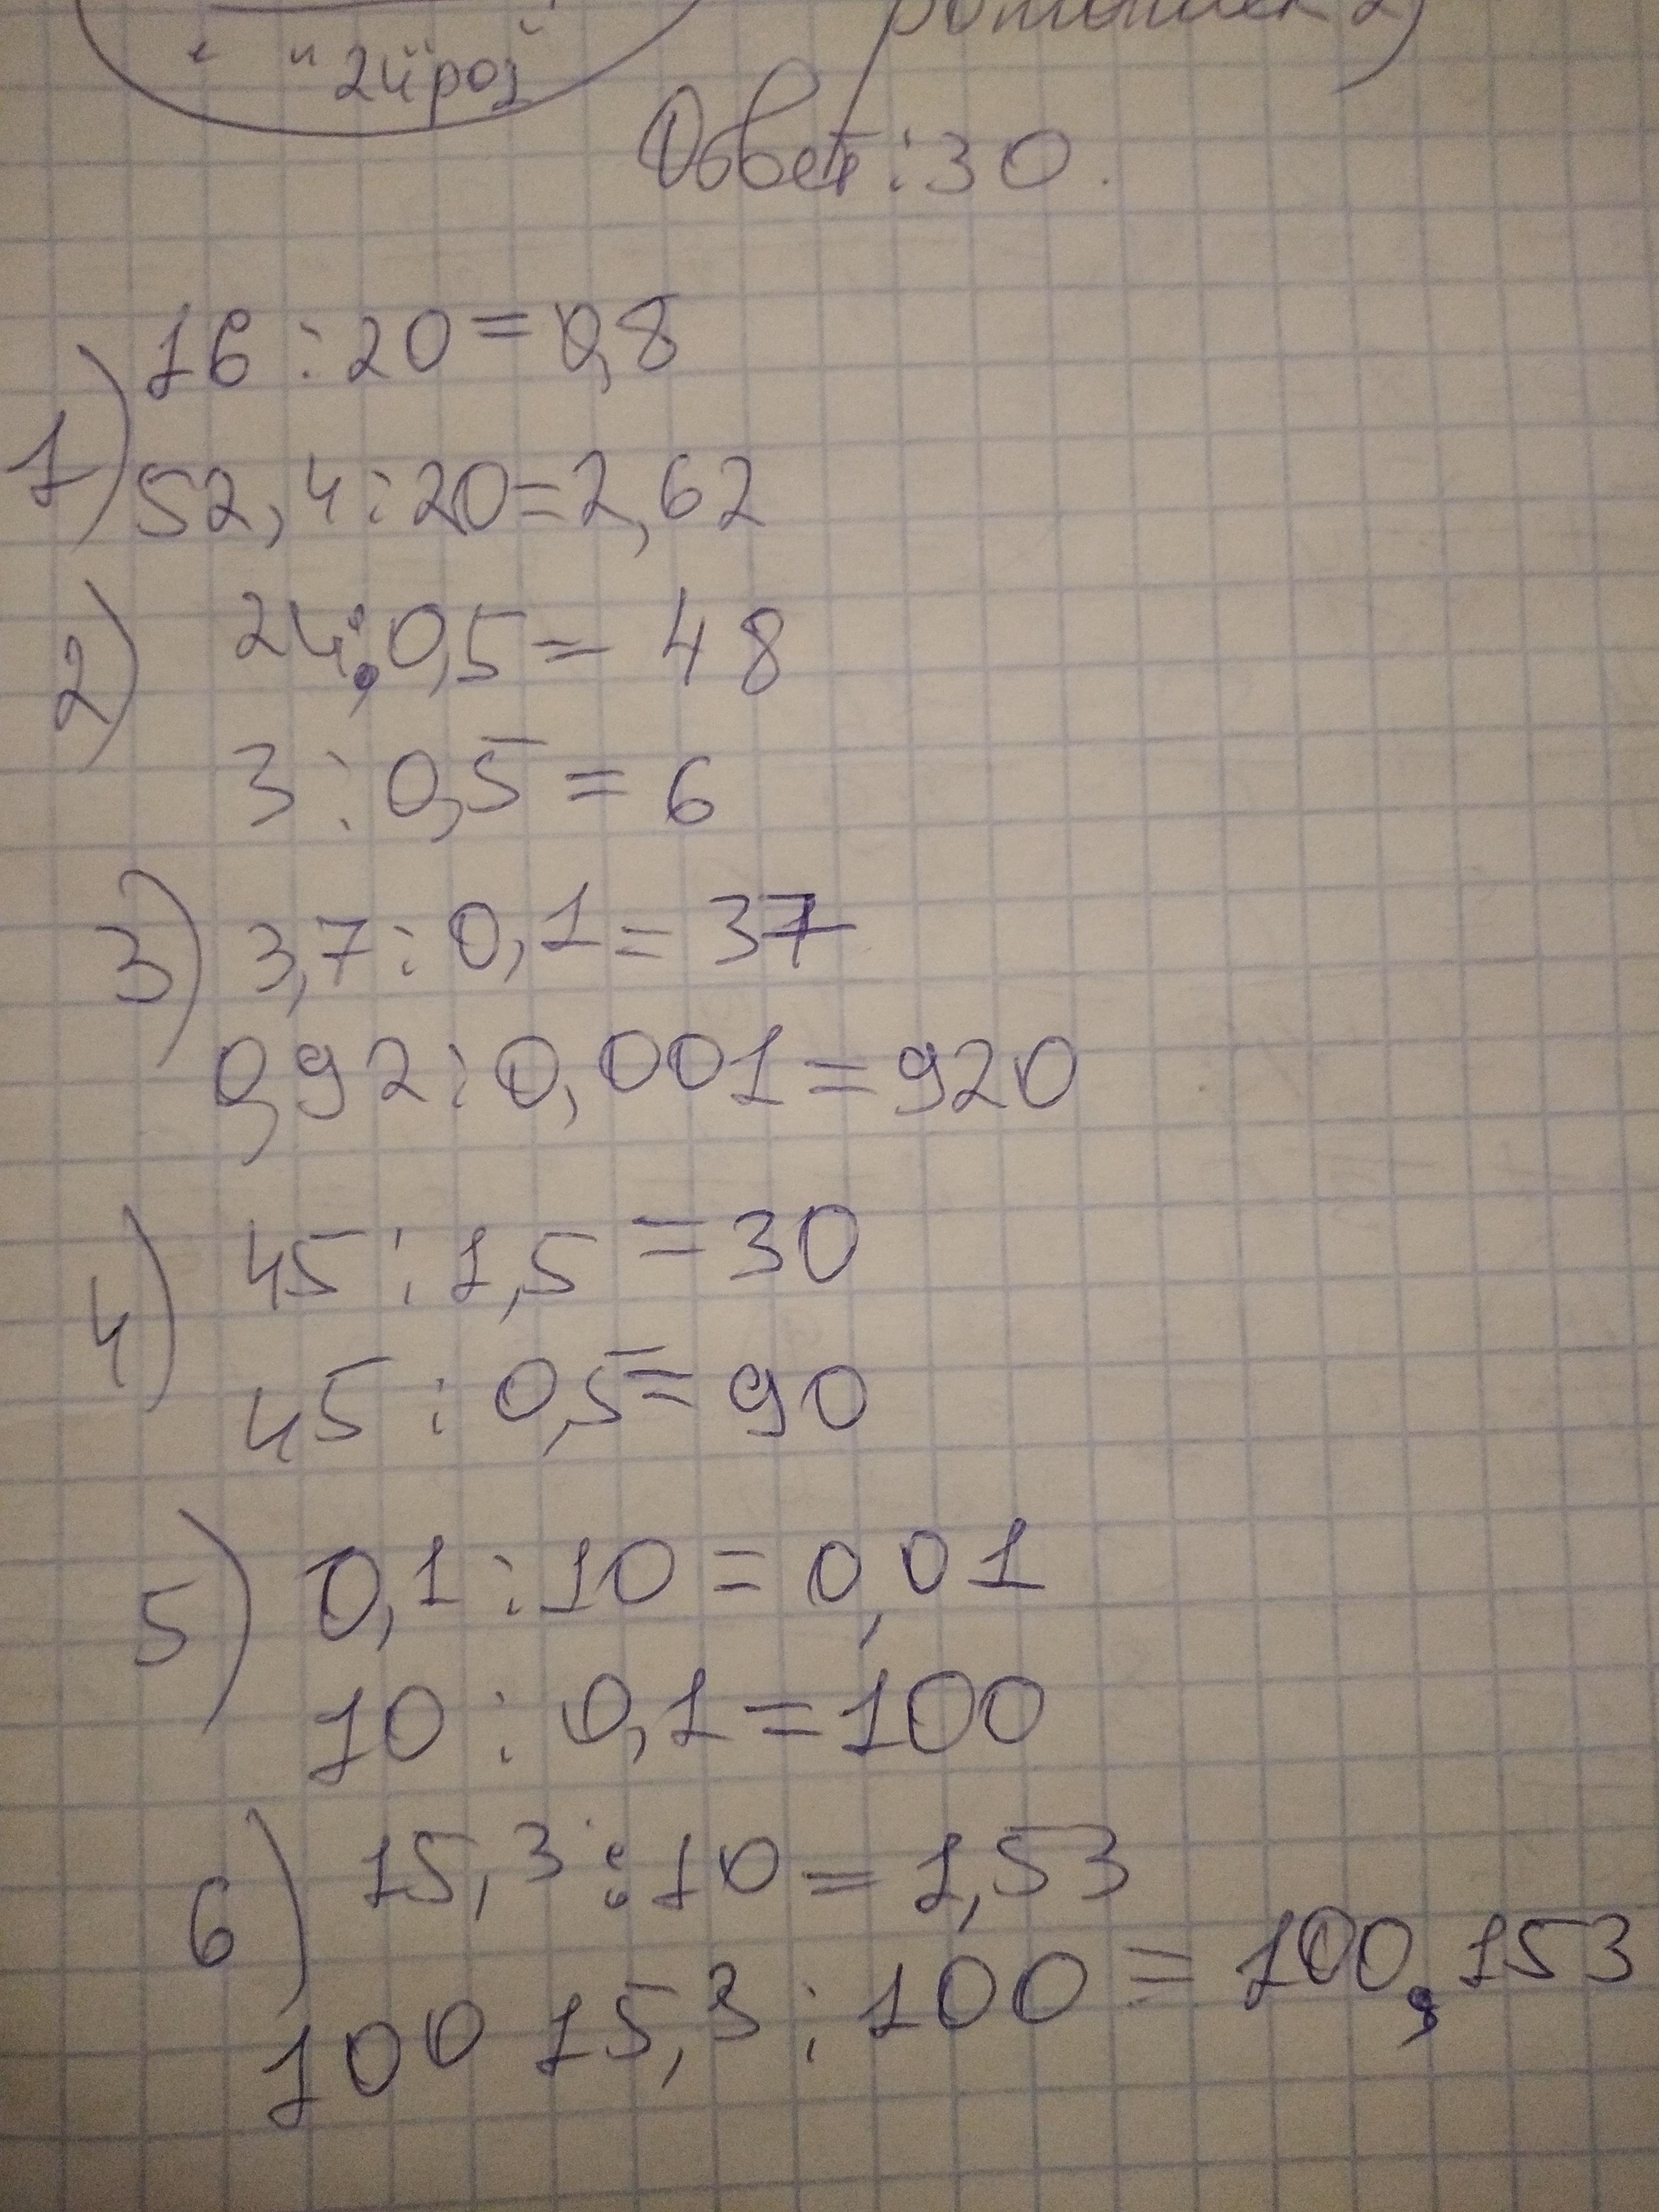 " 24 роз
Ответ: 30.
16 : 20 = 0,8
1)
52,4 : 20 = 2,62
2) 24 : 0,5 = 48
3 : 0,5 = 6
3) 3,7 : 0,1 = 37
0,92 : 0,001 = 920
4) 45 : 1,5 = 30
45 : 0,5 = 90
5) 0,1 : 10 = 0,01
10 : 0,1 = 100
6) 15,3 : 10 = 1,53
100 15,3 : 100 = 100,153